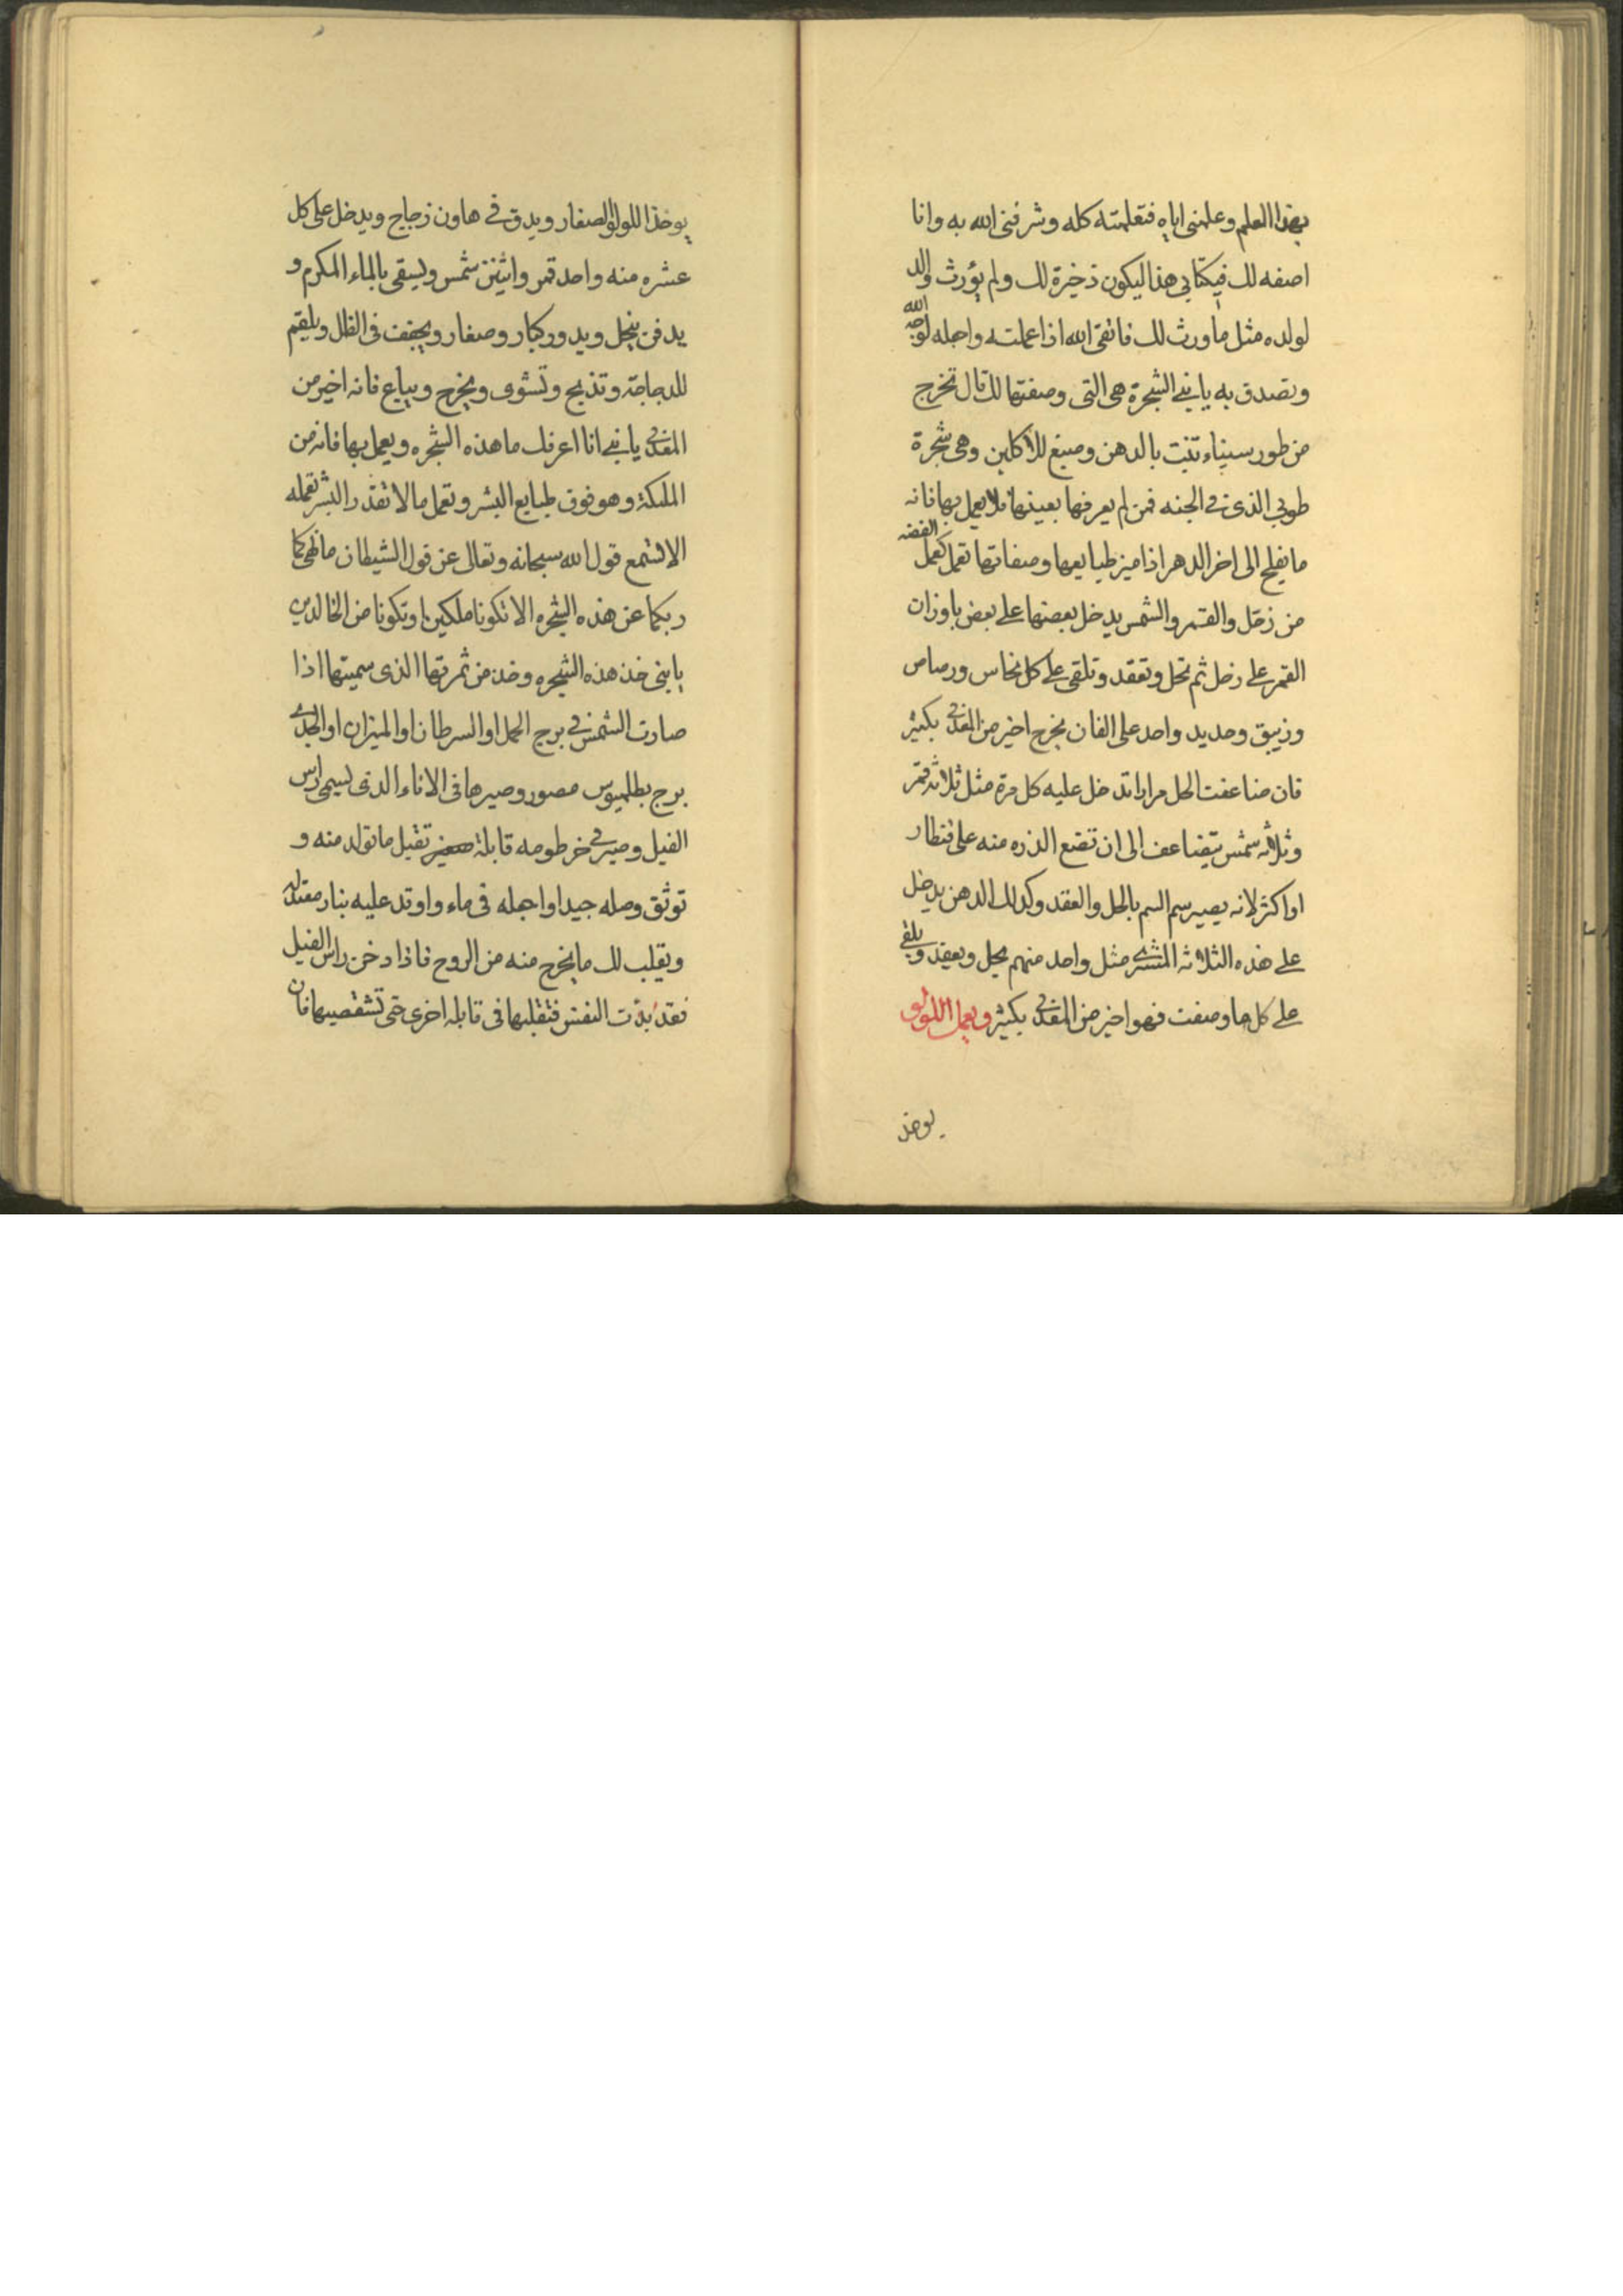 بهذا العلم وعلمنى اياه فتعلمته كله وشرفنى الله به وانا
اصفه لك فيكتابى هذا ليكون ذخيرة لك ولم يؤرث والد
لولده مثل ما ورث لك فاتقى الله اذا عملته واجله لوجه الله
وتصدق به يا بنى الشجرة هى التى وصفتها لك قال تخرج
من طور سيناء تنبت بالدهن وصبغ للاكلين وهى شجرة
طوبى الذى فى الجنه فمن لم يعرفها بعينها فلا يعمل بها فانه
ما يفلح الى اخر الدهر اذا ميز طبايعها وصفاتها تعمل كعمل الفضه
من زحل والقمر والشمس يدخل بعضها على بعض باوزان
القمر على زحل ثم تحل وتعقد وتلقى على كل نحاس ورصاص
وزيبق وحديد واحد على الفان يخرج اخير من المعدنى بكثير
فان ضاعفت الحل مرارا تدخل عليه كل مرة مثل ثلاثه قمر
وثلاثه شمس يتضاعف الى ان تضع الذره منه على قنطار
او اكثر لانه يصير سم السم بالحل والعقد وكذلك الدهن يدخل
على هذه الثلاثه المشترى مثل واحد منهم يحل ويعقد ويلقى
على كل ما وصفت فهو اخير من المعدنى بكثير ويعمل اللولو
يوخذ
يوخذ اللولو الصغار ويدق فى هاون زجاج ويدخل على كل
عشره منه واحد قمر واثنين شمس ويسقى بالماء المكرم و
يدفن بنحل ويدور كبار وصغار ويجفف فى الظل ويلقم
للدجاجة وتذبح وتشوى ويخرج ويباع فانه اخير من
المعدنى يا بنى انا اعرفك ما هذه الشجره ويعمل بها فانه من
الملكة وهو فوق طبايع البشر وتعمل ما لا تقدر البشر تعمله
الا فتسمع قول الله سبحانه وتعالى عن قول الشيطان ما نهى كما
ربكما عن هذه الشجره الا تكونا ملكين او تكونا من الخالدين
يا بنى خذ هذه الشجره وخذ من ثمرتها الذى سميتها اذا
صارت الشمس فى برج الحمل او السرطان او الميزان او الجدى
برج بطلميوس مصور وصيرها فى الاناء الذى يسمى راس
الفيل وصير فى خرطومه قابلة صغير تقبل ما تولد منه و
توثق وصله جيدا واجله فى ماء واوقد عليه بنار معتدله
ويقلب لك ما يخرج منه من الروح فاذا دخن راس الفيل
فقد بدت النفس فتقلبها فى قابله اخرى حتى تستقصيها فان